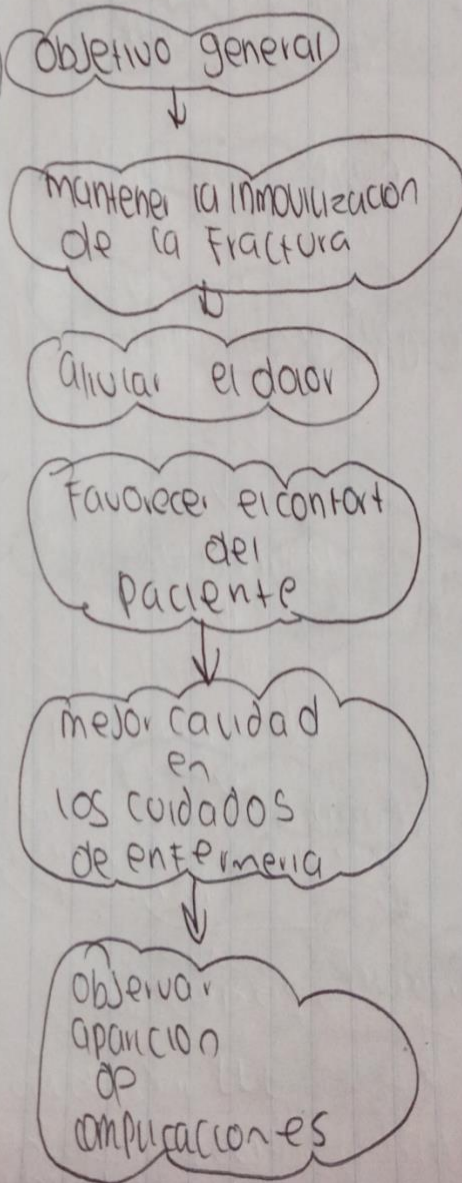 Objetivo general
mantener la inmovilizacion
de la Fractura
aliviar el dolor
Favorecer el confort
del
paciente
mejor calidad
en
los cuidados
de enfermeria
observar
aparicion
de
complicaciones